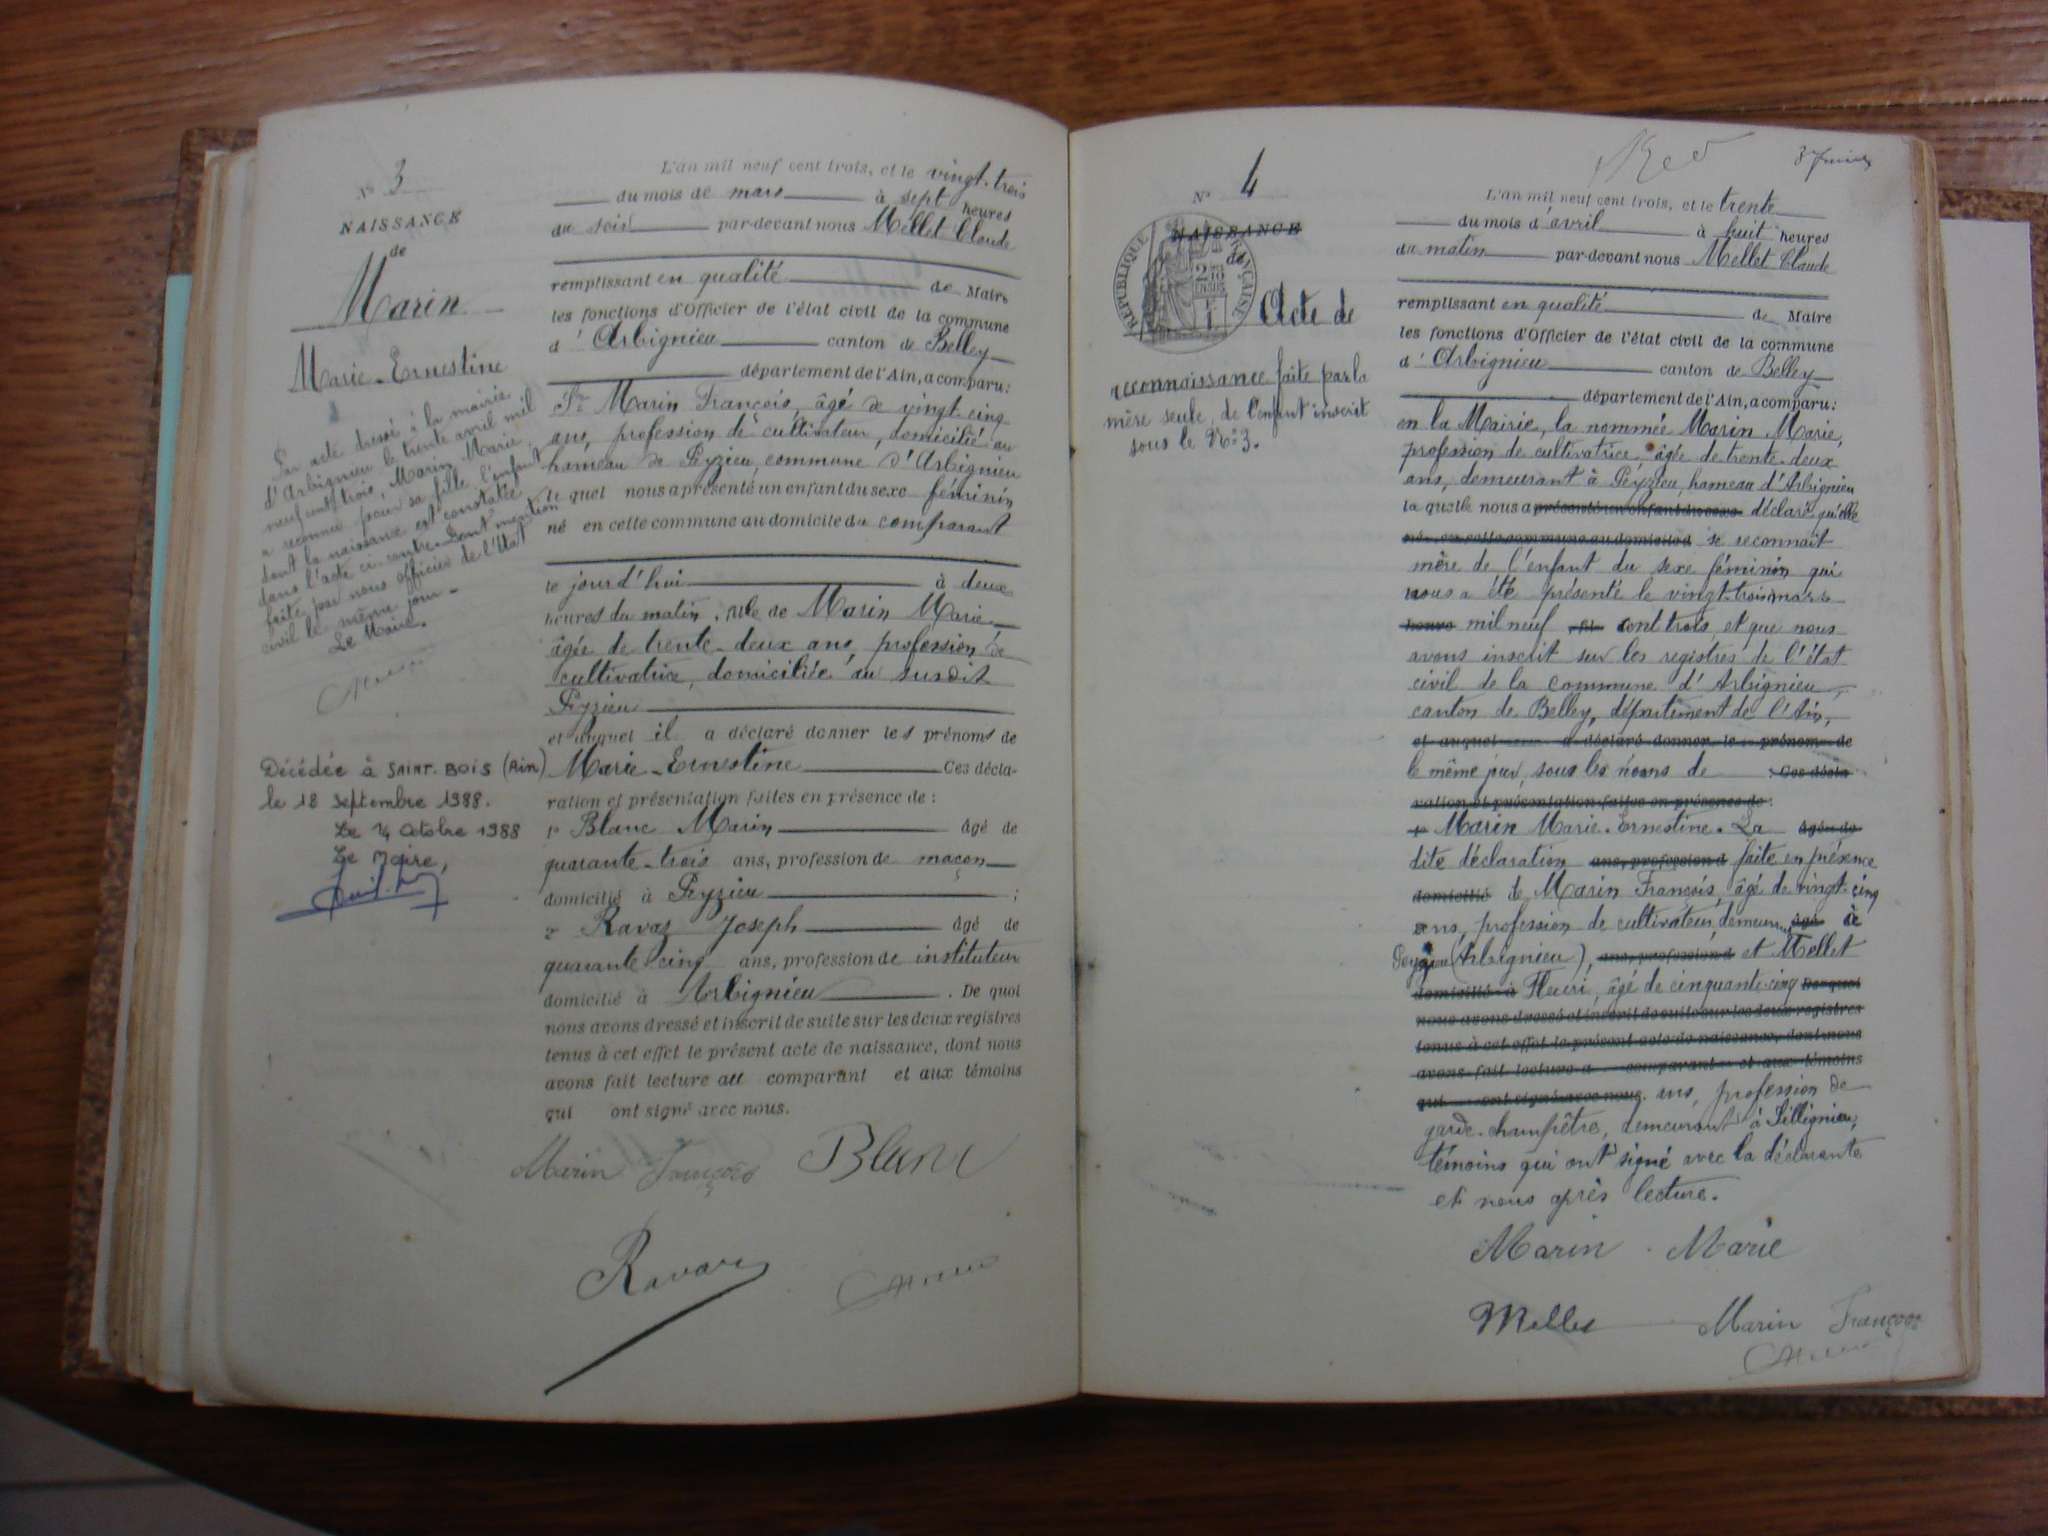 N° 3
NAISSANCE
de
Marin
Marie-Ernestine
Par acte dressé à la mairie
d'Arbignieu le trente avril mil
neuf cent trois, Marin Marie
a reconnu pour sa fille l'enfant
dont la naissance est constatée
dans l'acte ci-contre. Dont mention
faite par nous officier de l'Etat
civil le même jour.
Le Maire.
Décédée à SAINT-BOIS (Ain)
le 18 septembre 1988.
Le 4 Octobre 1988
Le Maire,
L'an mil neuf cent trois, et le vingt-trois
du mois de mars à sept heures
du soir par-devant nous Mellet Claude
remplissant en qualité de Maire
les fonctions d'Officier de l'état civil de la commune
d'Arbignieu canton de Belley
département de l'Ain, a comparu:
Sr Marin François, âgé de vingt-cinq
ans, profession de cultivateur, domicilié au
hameau de Peyzieu, commune d'Arbignieu
le quel nous a présenté un enfant du sexe féminin
né en cette commune au domicile du comparant
le jour d'hui à deux
heures du matin, née de Marin Marie
âgée de trente-deux ans, profession de
cultivatrice, domiciliée au susdit
Peyzieu
et auquel il a déclaré donner les prénoms de
Marie-Ernestine Ces décla-
ration et présentation faites en présence de :
1° Blanc Marin âgé de
quarante-trois ans, profession de maçon
domicilié à Peyzieu ;
2° Ravaz Joseph âgé de
quarante cinq ans, profession de instituteur
domicilié à Arbignieu. De quoi
nous avons dressé et inscrit de suite sur les deux registres
tenus à cet effet le présent acte de naissance, dont nous
avons fait lecture au comparant et aux témoins
qui ont signé avec nous.
Marin François Blanc
Ravaz
N° 4
NAISSANCE
de
RÉPUBLIQUE FRANÇAISE
Acte de
reconnaissance faite par la
mère seule, de l'enfant inscrit
sous le N° 3.
L'an mil neuf cent trois, et le trente
du mois d'avril à huit heures
du matin par-devant nous Mellet Claude
remplissant en qualité de Maire
les fonctions d'Officier de l'état civil de la commune
d'Arbignieu canton de Belley
département de l'Ain, a comparu:
en la Mairie, la nommée Marin Marie,
profession de cultivatrice âgée de trente-deux
ans, demeurant à Peyzieu, hameau d'Arbignieu
la quelle nous a présenté un enfant du sexe déclaré qu'elle
né en cette commune au domicile d se reconnait
mère de l'enfant du sexe féminin qui
nous a été présenté le vingt-trois mars
heures mil neuf cent trois, et que nous
avons inscrit sur les registres de l'état
civil de la commune d'Arbignieu,
canton de Belley, département de l'Ain,
et auquel a déclaré donner le prénom de
le même jour, sous les noms de Ces décla-
ration et présentation faites en présence de :
1° Marin Marie-Ernestine. La âgé de
dite déclaration ans, profession d faite en présence
domicilié de Marin François, âgé de vingt-cinq
ans, profession de cultivateur, demeurant âgé à
Peyzieu (Arbignieu), ans, profession d et Mellet
domicilié à Fleuri, âgé de cinquante-cinq De quoi
nous avons dressé et inscrit de suite sur les deux registres
tenus à cet effet le présent acte de naissance, dont nous
avons fait lecture a comparant et aux témoins
qui ont signé avec nous. ans, profession de
garde-champêtre, demeurant à Sillignieu,
témoins qui ont signé avec la déclarante
et nous après lecture.
Marin Marie
Mellet Marin François